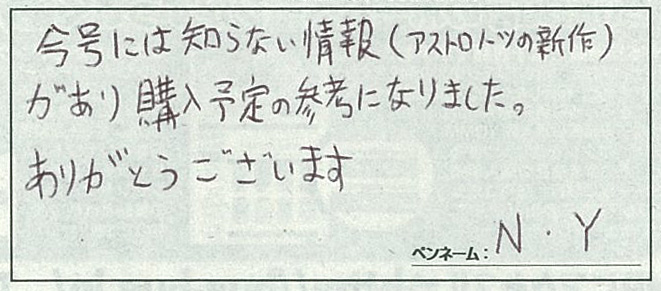 今号には知らない情報(アストロトツの新作)
があり購入予定の参考になりました。
ありがとうございます
ペンネーム: N・Y